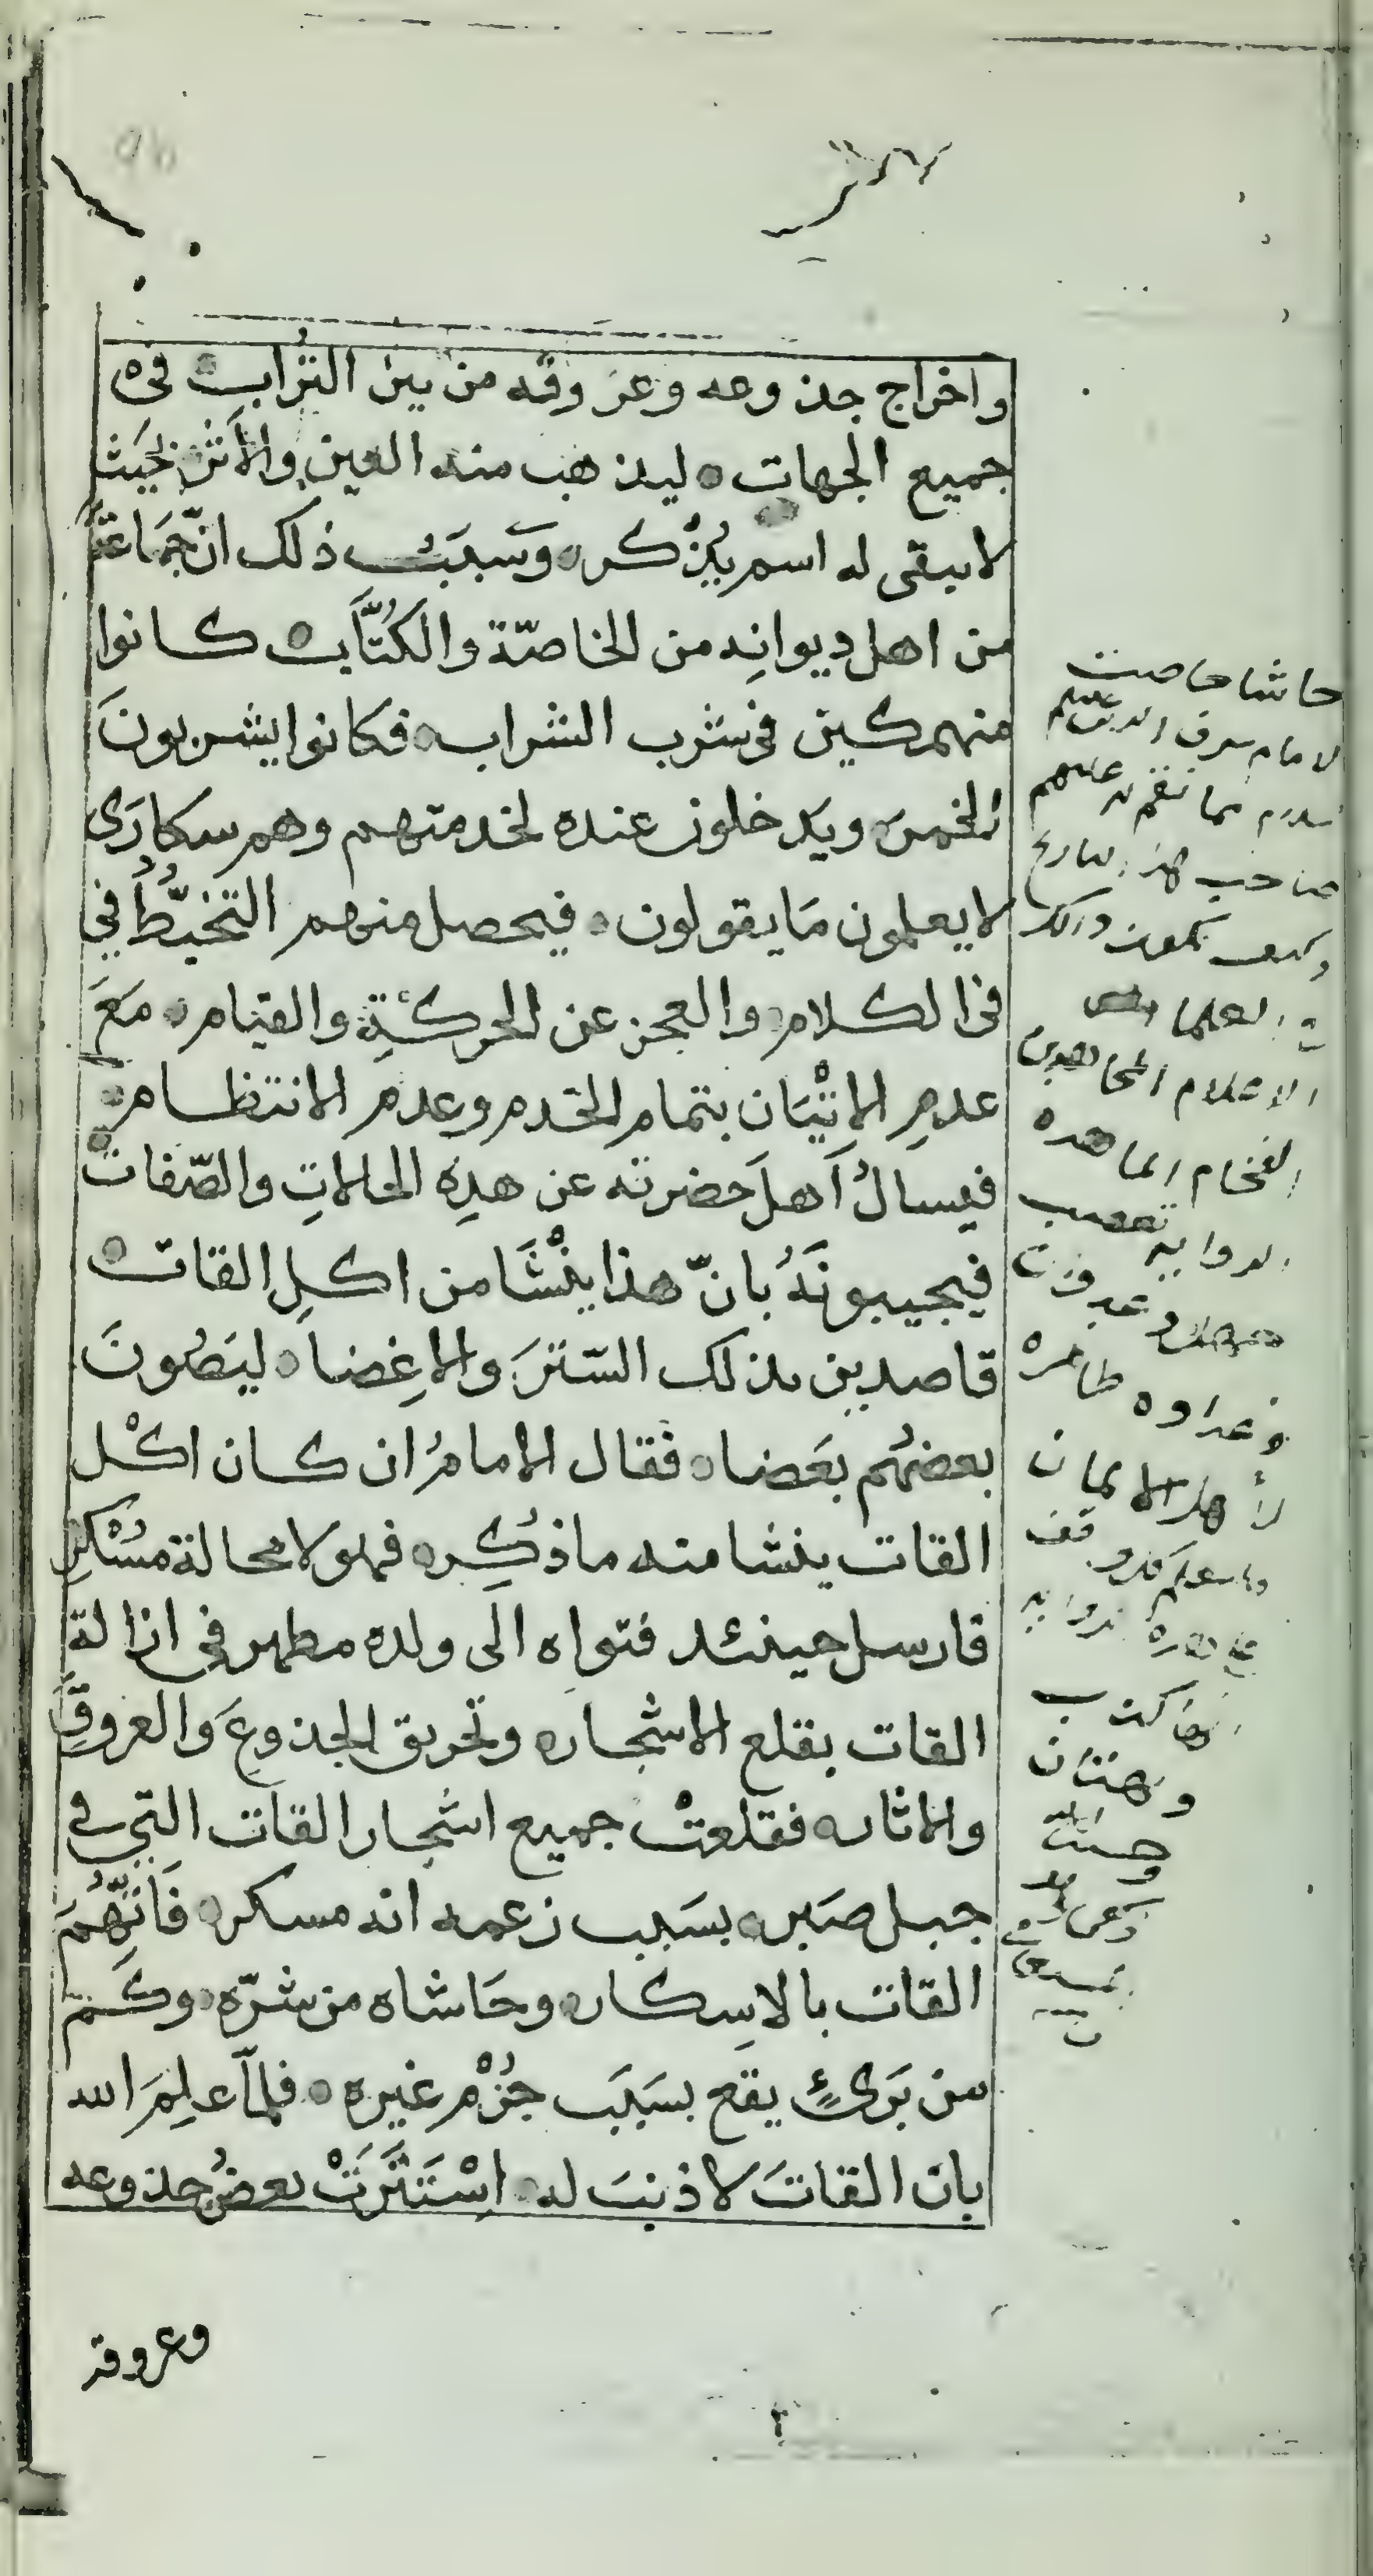 واخراج جذوعه وعروقه من بين التُراب في
جميع الجهات ليذهب منه العين والأثر بحيث
لا يبقى له اسم يُذْكر وسَبَبُ ذلك انّ جَمَاعَةً
من اهل ديوانِه من الخاصّة والكُتَّاب كانوا
منهمكين في شرب الشراب فكانوا يشربونَ
الخمرَ ويَدخلون عنده لخدمتهم وهم سكارَى
لا يعلمون مَا يقولون فيحصل منهم التخبُّطُ في
في الكلام والعجز عن الحركةِ والقيام مَعَ
عدمِ الاِتْيَان بتمام الخدم وعدم الانتظام
فيسالُ اَهلَ حَضرته عن هذِه الحالاتِ والصّفات
فيجيبونَهُ بانّ هذا ينْشَا من اكلِ القات
قاصدين بذلك السّترَ والاِغضا ليَصُونَ
بعضهُم بعَضا فقال الامامُ ان كان اكْل
القات ينشا منه ما ذُكِر فهو لا محالة مُسْكِر
فارسل حينئد فتواه الى ولده مطهر في ازالة
القات بقلع الاشجار وتحريق الجذوعِ والعروقِ
والاثار فقلعتْ جميع اشجار القات التي في
جبل صَبِر بسَبب زعمه انه مسكر فَاتُّهِمَ
القات بالاِسكار وحَاشاه من شرّه وكَم
من بَرىءٍ يقع بسَبَب جُرْم غيره فلمّا عَلِمَ الله
بان القاتَ لا ذنبَ له اسْتَتَرَتْ بعضُ جذوعه
وعروقه
حاشا حاشا
الامام شرف الدين عليه
السلام مما نقم به عليهم
صاحب هذا التاريخ
وكيف يكون ذلك
العلما
الاعلام المجاهدين
الفخام
تعصب
وعداوه ظاهره
لأهل الايمان
كتب
وبهتان